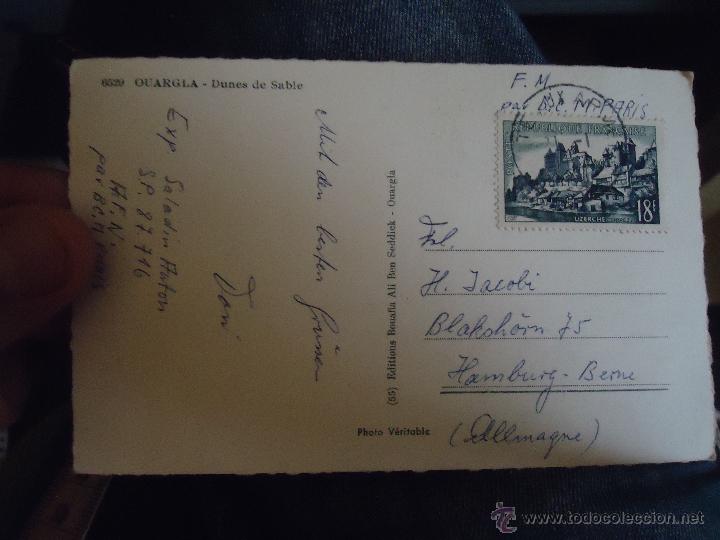 6529 OUARGLA - Dunes de Sable
F. M
par B.C. M. PARIS
RÉPUBLIQUE FRANÇAISE
POSTES
UZERCHE
18F
Mit den besten Grüssen
Toni
Exp Saladin Anton
SP. 87 716
A.F.N.
par B.C.M. Paris
(55) Editions Bouafia Ali Ben Seddick - Ouargla
Photo Véritable
Frl.
H. Jacobi
Blakshörn 75
Hamburg-Berne
(Allmagne)
www.todocoleccion.net